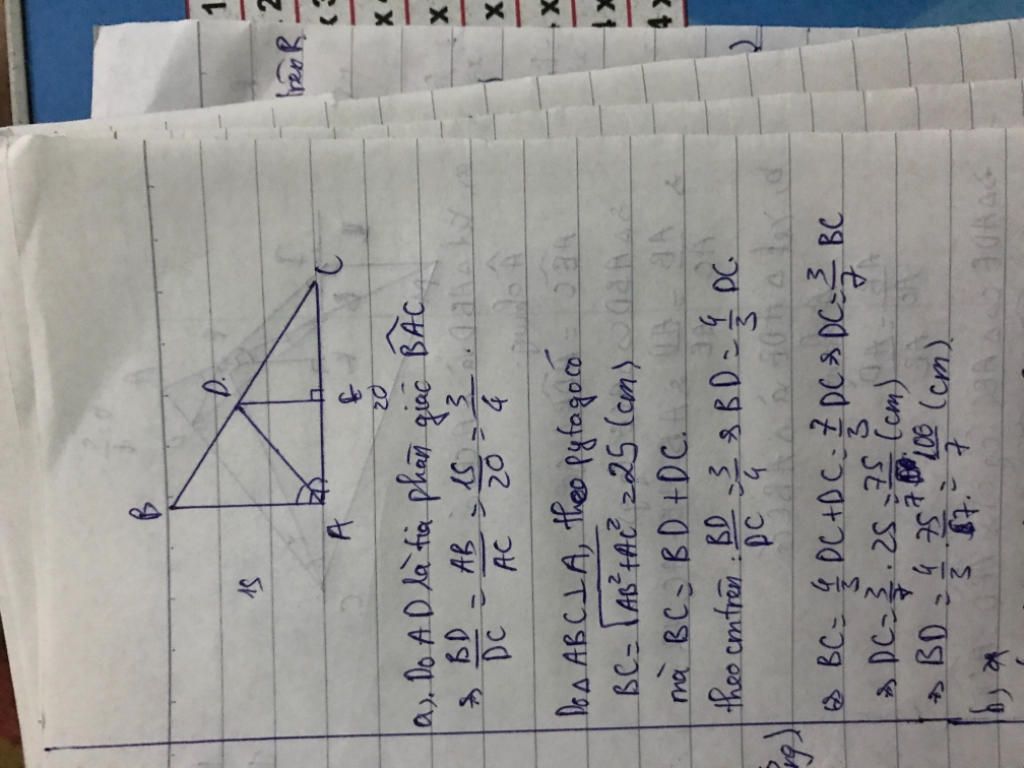 B
D.
C
15
A
E
20
a), Do AD là tia phân giác BAC
=> BD/DC = AB/AC = 15/20 = 3/4.
Do △ ABC ⊥ A, theo pytago có
BC = √AB²+AC² = 25 (cm)
mà BC = BD + DC.
theo cm trên: BD/DC = 3/4 => BD = 4/3 DC.
=> BC = 4/3 DC + DC = 7/3 DC => DC = 3/7 BC
=> DC = 3/7 . 25 = 75/7 (cm)
=> BD = 4/3 . 75/7 = 100/7 (cm)
b),
trên R
1
2
x
x
x
x
x
4x
4x